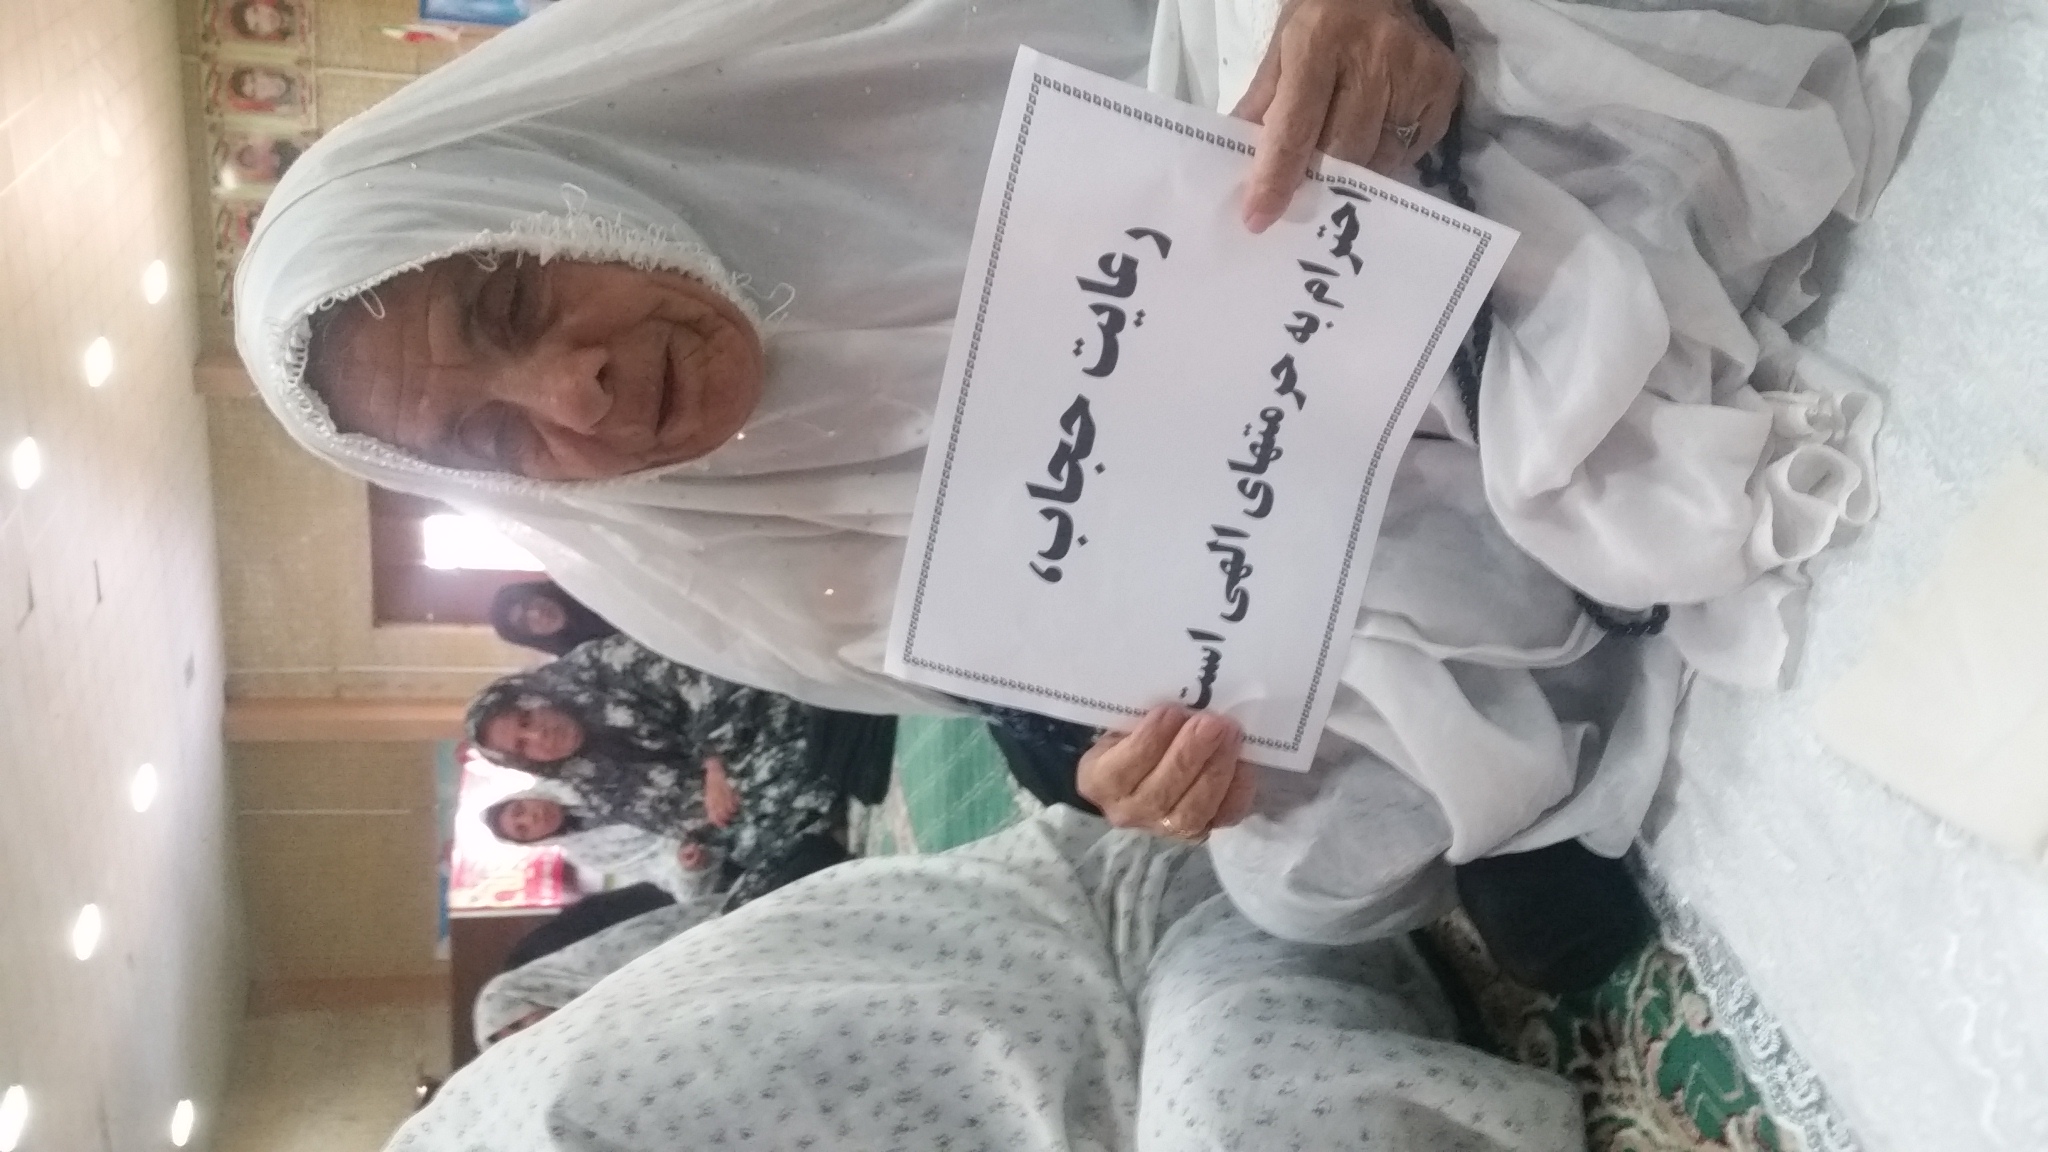 رعایت حجاب،
احترام به حرمتهای الهی است